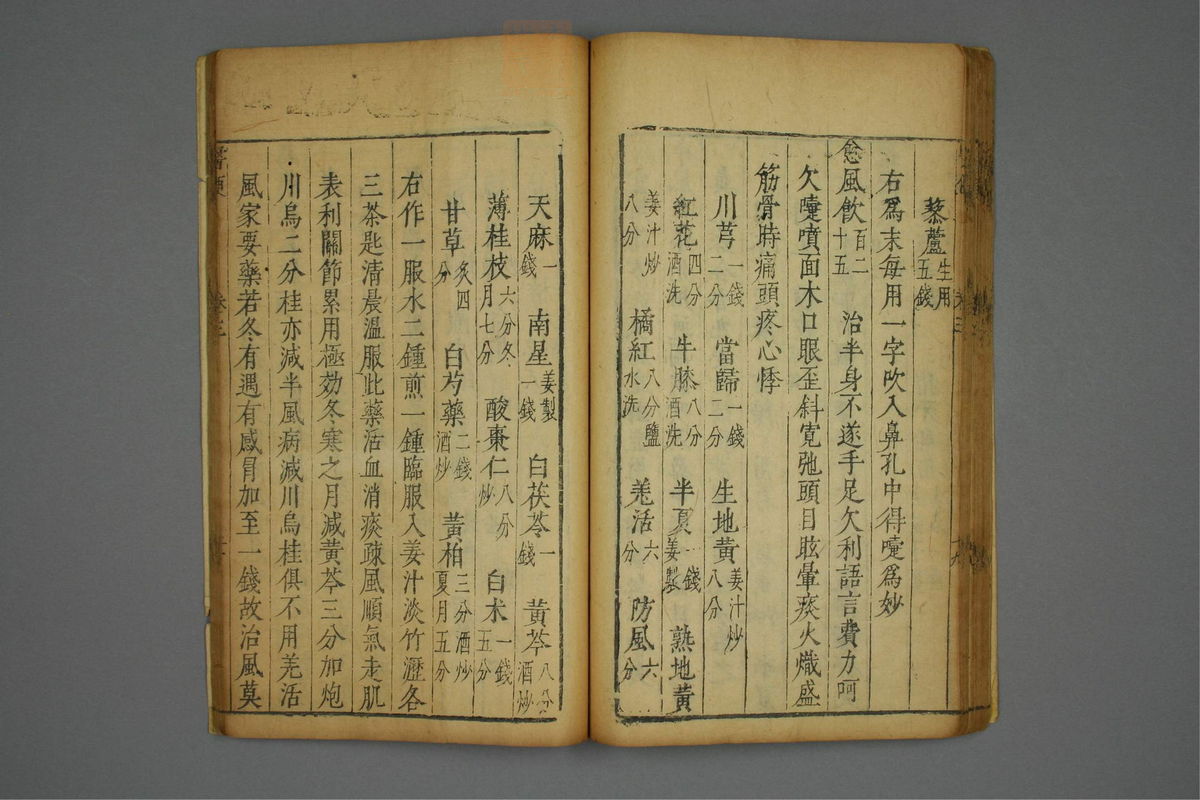 藜蘆生用五錢
右爲末每用一字吹入鼻孔中得嚏爲妙
愈風飲百二十五 治半身不遂手足欠利語言費力呵
欠嚏噴面木口眼歪斜寬弛頭目眩暈痰火熾盛
筋骨時痛頭疼心悸
川芎一錢二分 當歸一錢二分 生地黃姜汁炒八分
紅花四分酒洗 牛膝八分酒洗 半夏姜製錢 熟地黃
姜汁炒八分 橘紅八分鹽水洗 羌活六分 防風六分
天麻一錢 南星姜製一錢 白茯苓一錢 黃芩八分酒炒
薄桂枝六分冬月七分 酸棗仁八分炒 白朮一錢五分
甘草炙四分 白芍藥二錢酒炒 黃柏三分酒炒夏月五分
右作一服水二鍾煎一鍾臨服入姜汁淡竹瀝各
三茶匙清晨溫服此藥活血消痰疎風順氣走肌
表利關節累用極効冬寒之月減黃芩三分加炮
川烏二分桂亦減半風病減川烏桂俱不用羌活
風家要藥若冬有遇有感冒加至一錢故治風莫
卷三